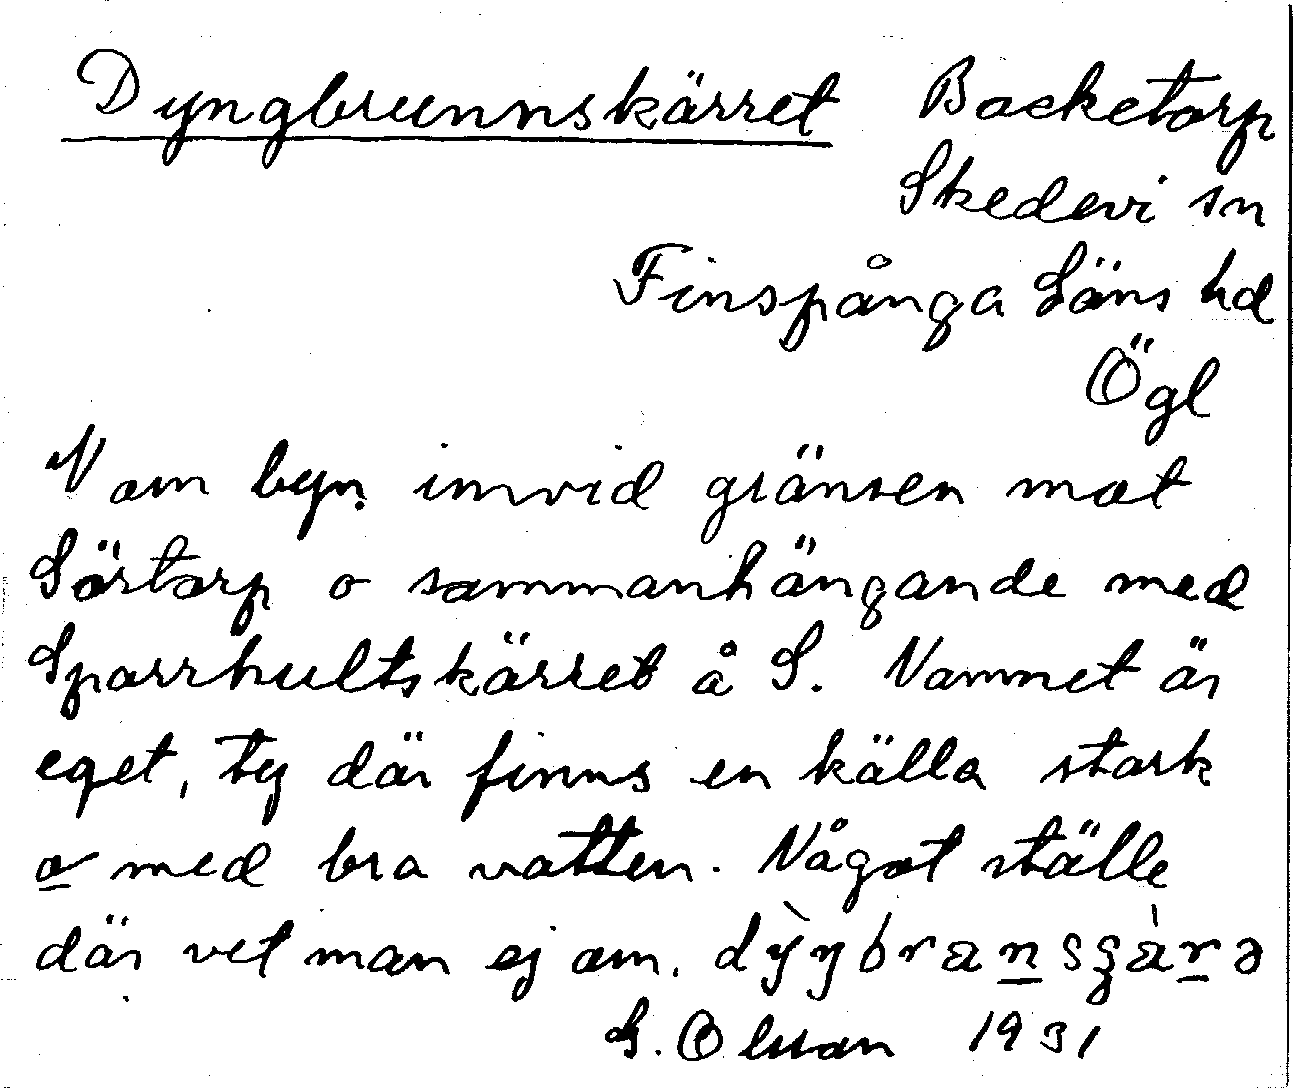 Dyngbrunnskärret Backetorp
Skedevi sn
Finspånga Läns hd
Ögl
N om byn invid gränsen mot
Sörtorp o sammanhängande med
Sparrhultskärret å S. Namnet är
eget, ty där finns en källa stark
o med bra vatten. Något ställe
där vet man ej om.
G. Olsson 1931